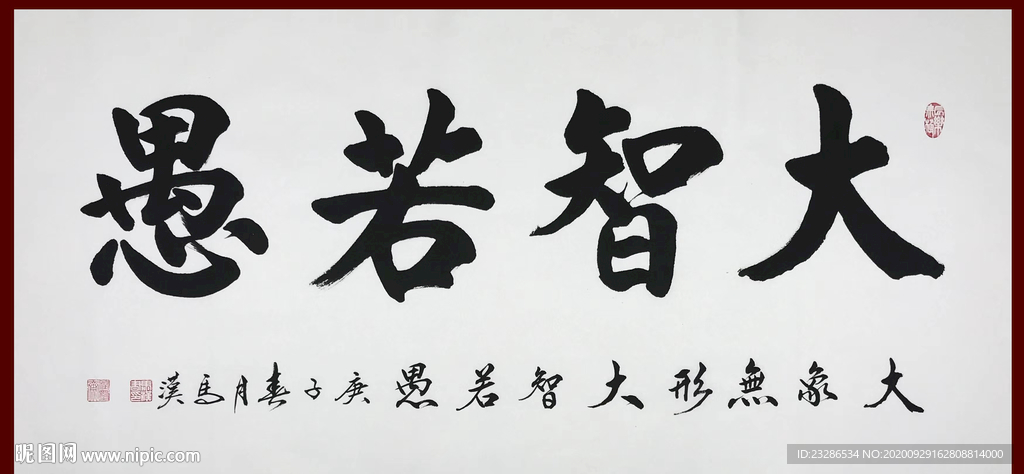 大智若愚
大象無形大智若愚庚子春月馬漢
昵图网 www.nipic.com
ID:23286534 NO:20200929162808814000